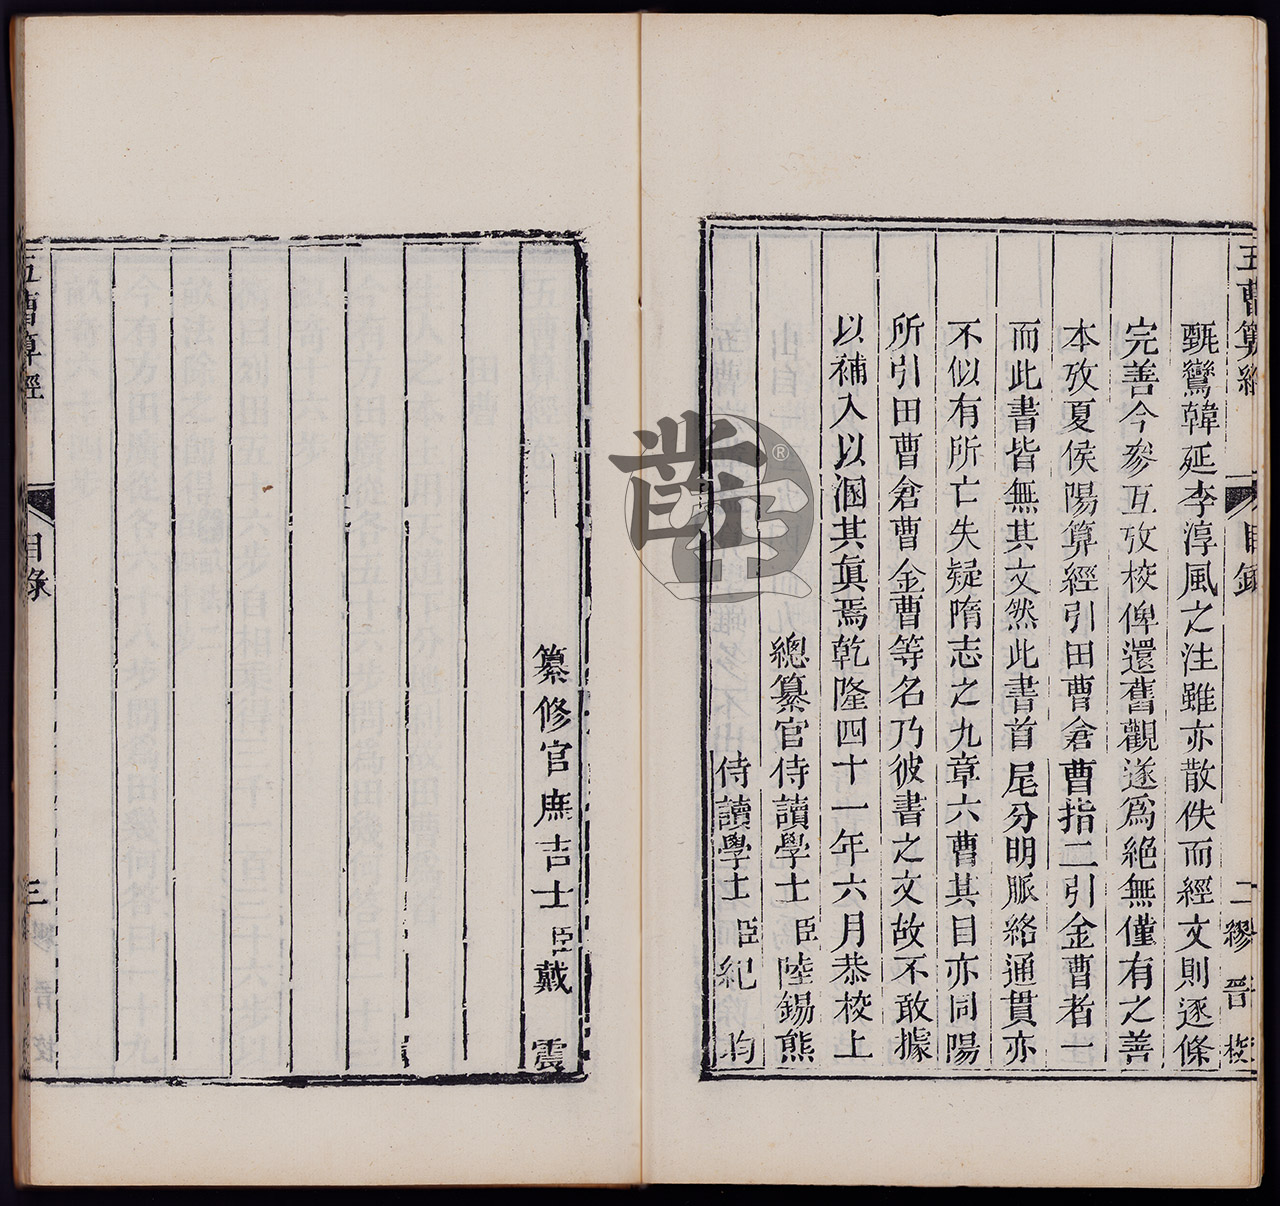 五曹算經 目錄 二 繆晉校
甄鸞韓延李淳風之注雖亦散佚而經文則逐條
完善今參互攷校俾還舊觀遂爲絕無僅有之善
本攷夏侯陽算經引田曹倉曹指二引金曹者一
而此書皆無其文然此書首尾分明脈絡通貫亦
不似有所亡失疑隋志之九章六曹其目亦同陽
所引田曹倉曹金曹等名乃彼書之文故不敢據
以補入以溷其眞焉乾隆四十一年六月恭校上
總纂官侍讀學士臣陸錫熊
侍讀學士臣紀昀
纂修官庶吉士臣戴震
五曹算經 目錄 三